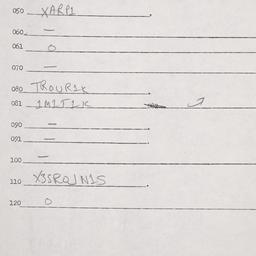 050 XARP1
060 —
061 O
070 —
080 TROUR1K
081 1M1T1K
090 —
091 —
100 —
110 X3SRQJN1S
120 O